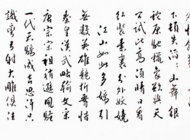 下頓失滔滔山舞銀
蛇原馳蠟象欲與天
公試比高須晴日看
紅裝素裹分外妖嬈
江山如此多嬌引
無數英雄競折腰惜
秦皇漢武略輸文采
唐宗宋祖稍遜風騷
一代天驕成吉思汗只
識彎弓射大雕俱往